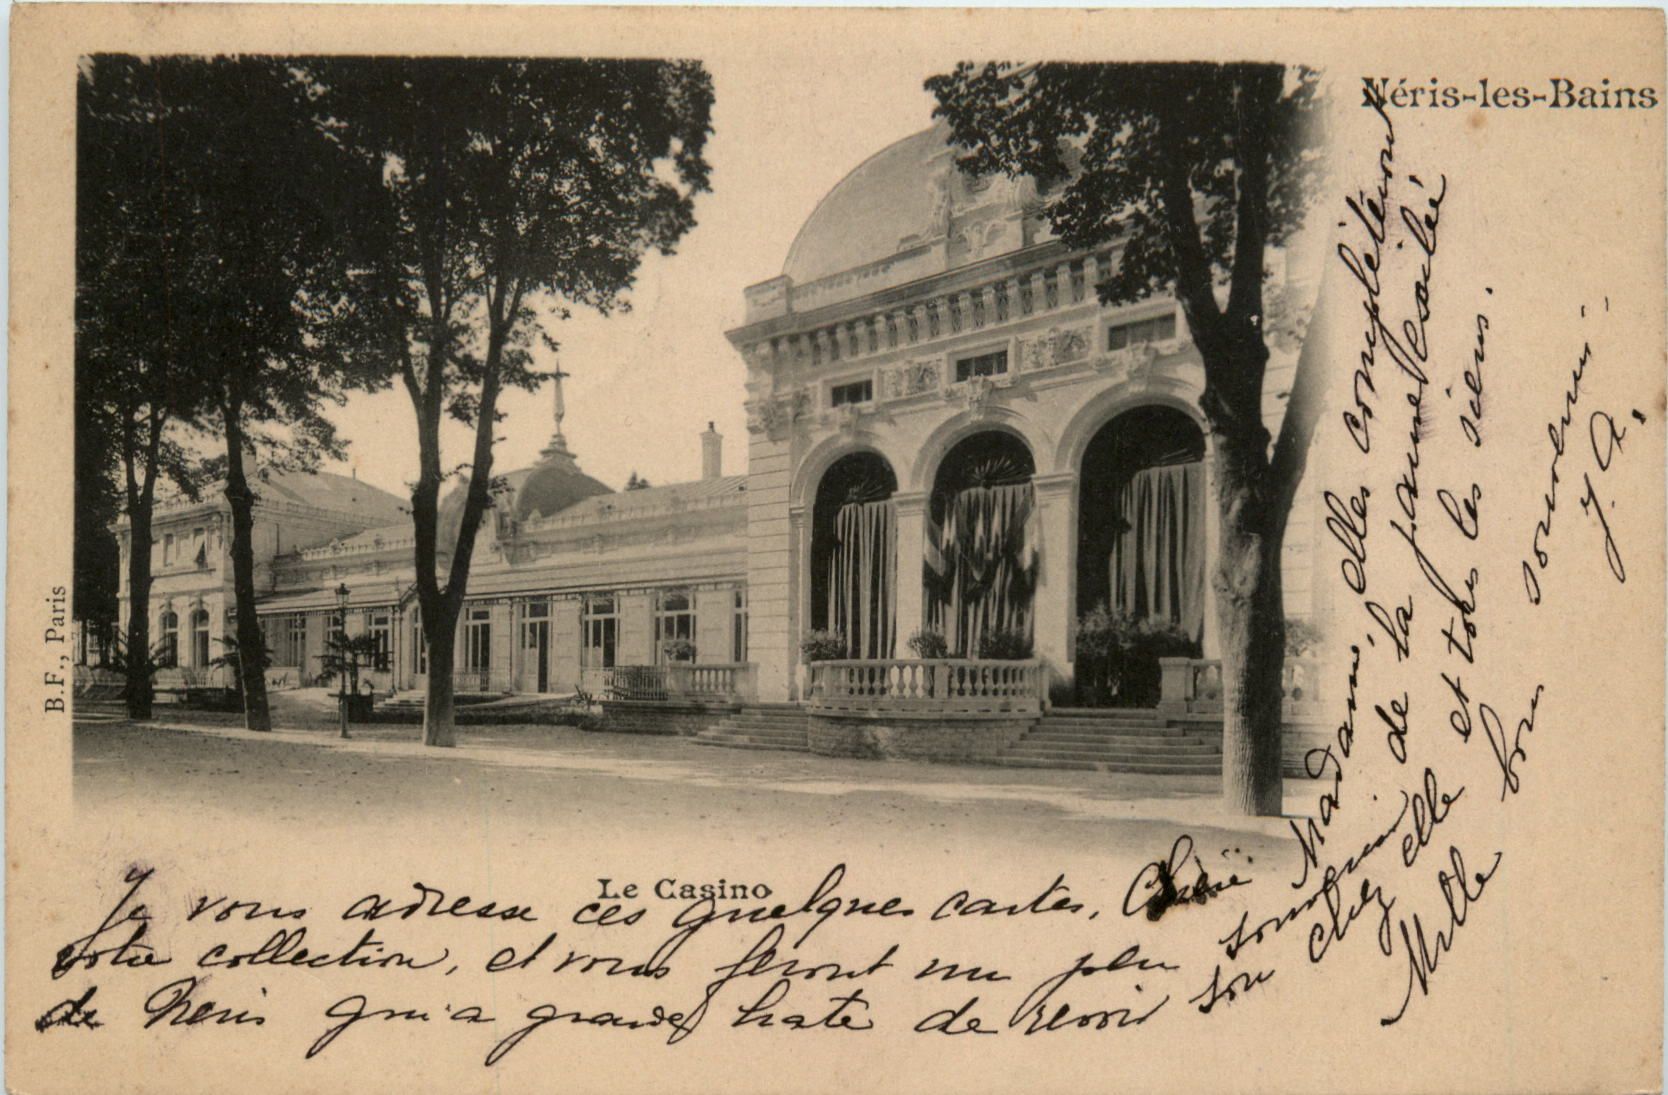 Néris-les-Bains
B.F., Paris
Le Casino
Je vous adresse ces quelques cartes, Chère Madame, elles complèteront
votre collection, et vous feront un peu souvenir de la
de Neris qui a grande hate de revoir son chez elle et tous les siens.
Mille bons souvenirs -
J. A.